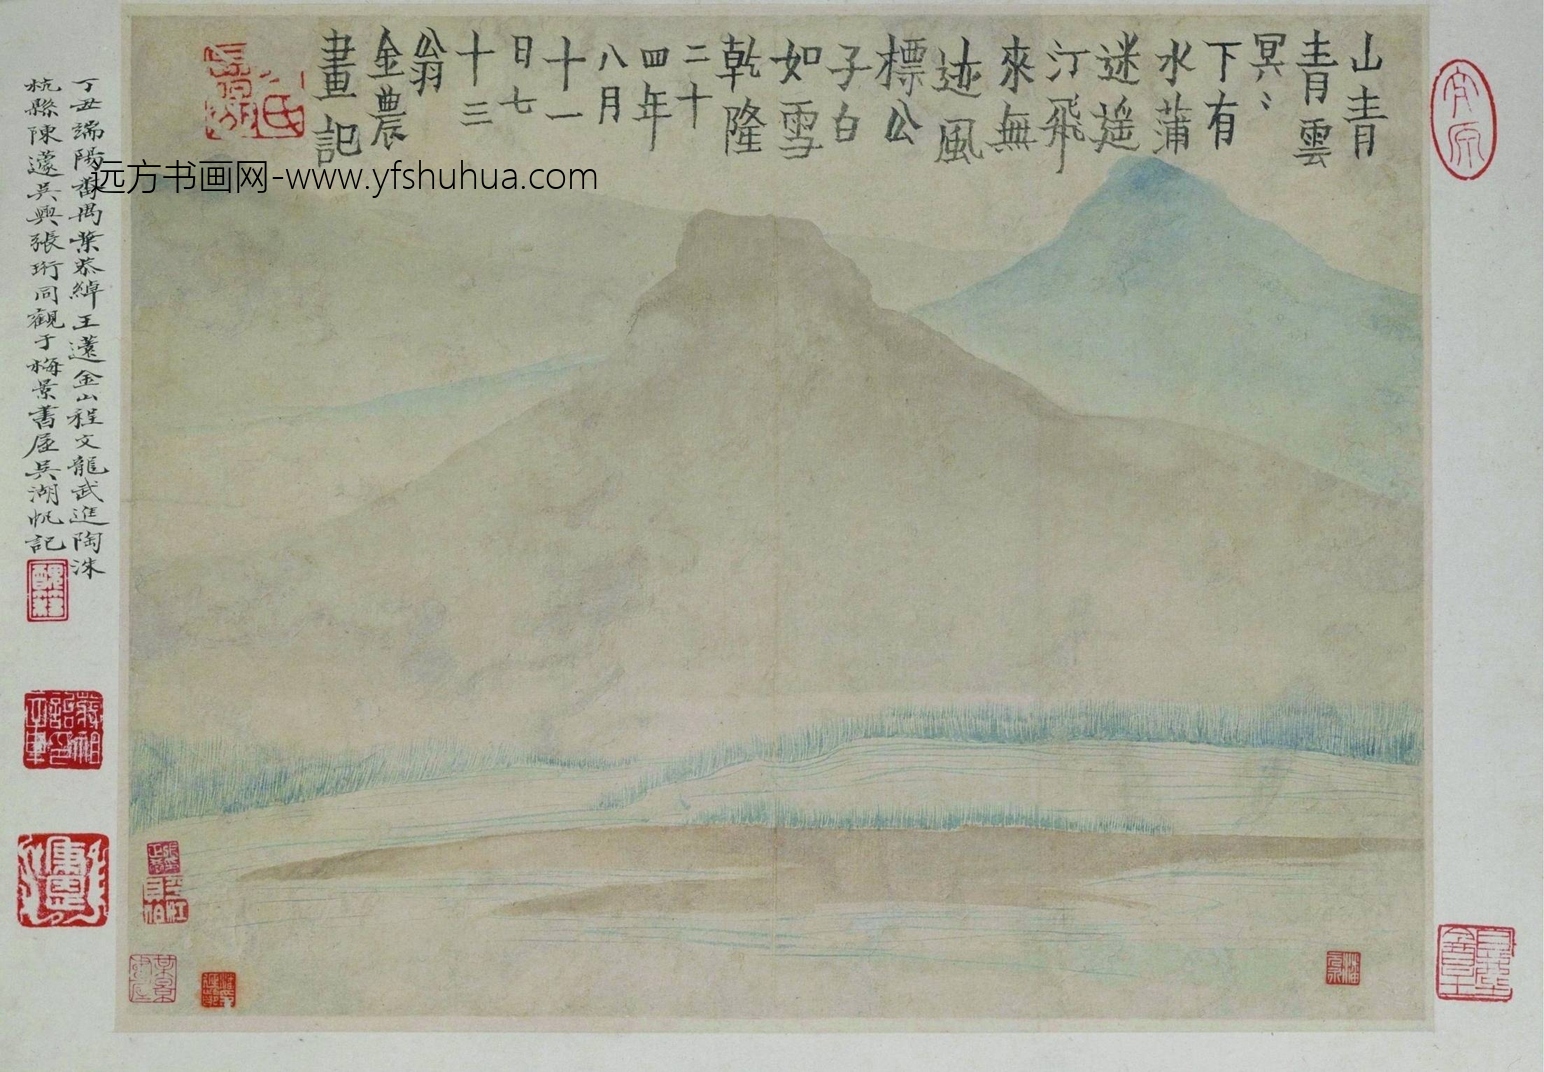 山青
青雲
冥〻
下有
水蒲
迷遙
汀飛
來無
迹風
標公
子白
如雪
乾隆
二十
四年
八月
十一
日七
十三
翁
金農
畫記
丁丑端陽番禺葉恭綽王金山程文龍武進陶洙
杭縣陳蘧吳興張珩同觀于梅景書屋吳湖帆記
远方书画网-www.yfshuhua.com